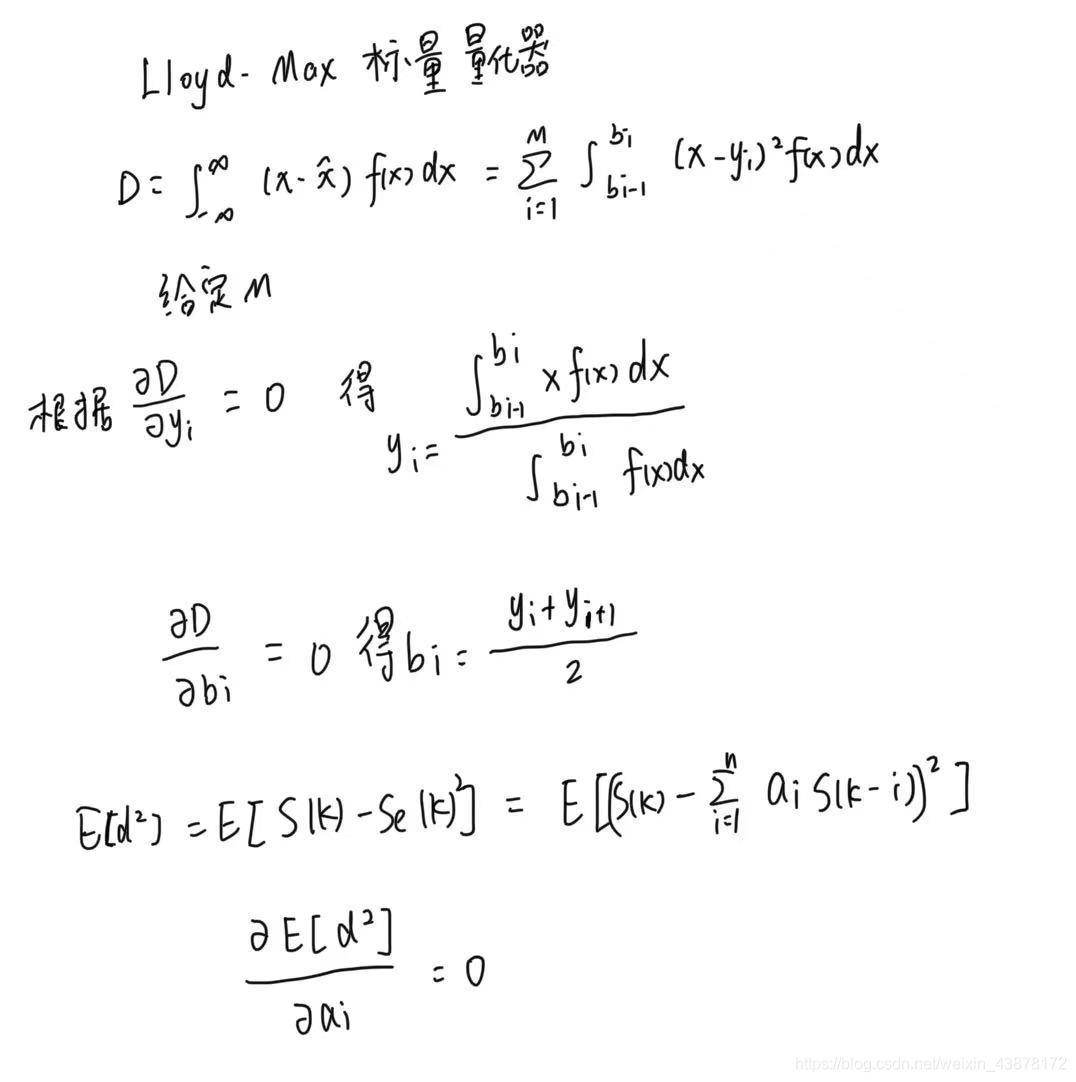 Lloyd-Max 标量量化器
D = ∫_{-∞}^{∞} (x-x̂) f(x) dx = ∑_{i=1}^{M} ∫_{bi-1}^{bi} (x-yi)² f(x) dx
给定M
根据 ∂D/∂yi = 0 得 yi = ∫_{bi-1}^{bi} x f(x) dx / ∫_{bi-1}^{bi} f(x)dx
∂D/∂bi = 0 得 bi = (yi+yi+1)/2
E[d²] = E[S(k)-Se(k)²] = E[(S(k)-∑_{i=1}^{n} ai S(k-i))²]
∂E[d²]/∂ai = 0
https://blog.csdn.net/weixin_43878172